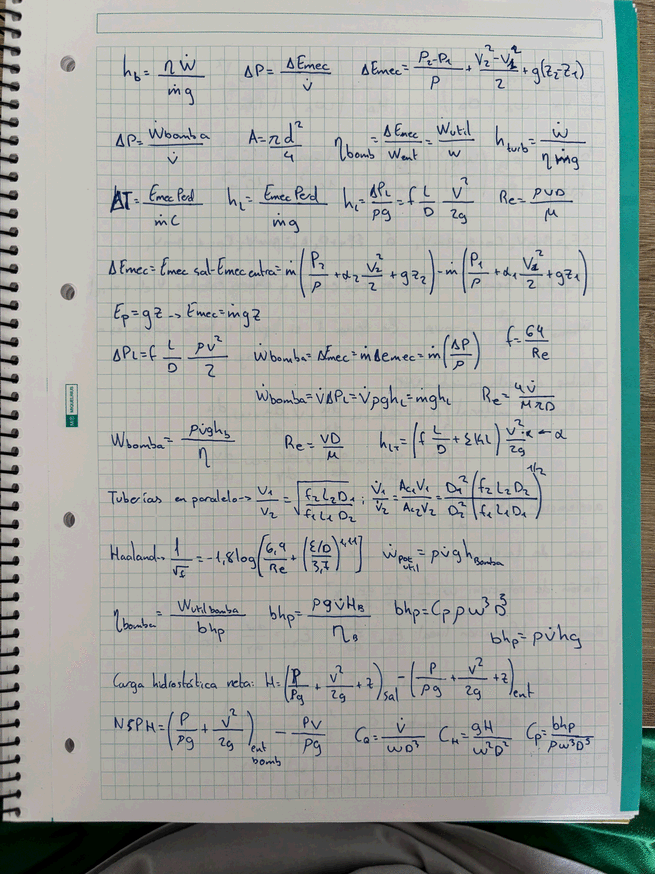 h_b = η Ẇ / ṁ g    ΔP = ΔĖmec / V̇    ΔEmec = (P₂-P₁)/ρ + (V₂²-V₁²)/2 + g(z₂-z₁)
ΔP = Ẇbomba / V̇    A = π d²/4    η_bomb = ΔEmec / Went = Wutil / W    h_turb = Ẇ / η ṁg
ΔT = Emec Perd / ṁ C    h_L = Emec Perd / ṁg    h_L = ΔP_L / ρg = f L/D V²/2g    Re = ρVD / μ
ΔEmec = Emec sal - Emec entra = ṁ(P₂/ρ + α₂ V₂²/2 + gz₂) - ṁ(P₁/ρ + α₁ V₁²/2 + gz₁)
Ep = gz → Emec = ṁgz
ΔP_L = f L/D ρV²/2    Ẇbomba = ΔĖmec = ṁΔemec = ṁ(ΔP/ρ)    f = 64/Re
Ẇbomba = V̇ΔP_L = V̇ρgh_L = ṁgh_L    Re = 4V̇ / μπD
Wbomba = ρV̇gh_b / η    Re = VD / μ    h_LT = (f L/D + ΣK_L) V²/2g ·α ← α
Tuberías en paralelo → V₁/V₂ = √(f₂L₂D₁ / f₁L₁D₂) ; V̇₁/V̇₂ = A_c1V₁ / A_c2V₂ = D₁²/D₂² (f₂L₂D₂ / f₁L₁D₁)^1/2
Haaland → 1/√f = -1,8log[6,9/Re + (ε/D / 3,7)^1,11]    ẇ_pot util = ρV̇gh_Bomba
η_bomba = Wutil bomba / bhp    bhp = ρgV̇H_B / η_B    bhp = C_P ρω³D⁵
bhp = ρV̇hg
Carga hidrostática neta: H = (P/ρg + V²/2g + z)_sal - (P/ρg + V²/2g + z)_ent
NSPH = (P/ρg + V²/2g)_ent bomb - Pv/ρg    C_Q = V̇ / ωD³    C_H = gH / ω²D²    C_P = bhp / ρω³D⁵